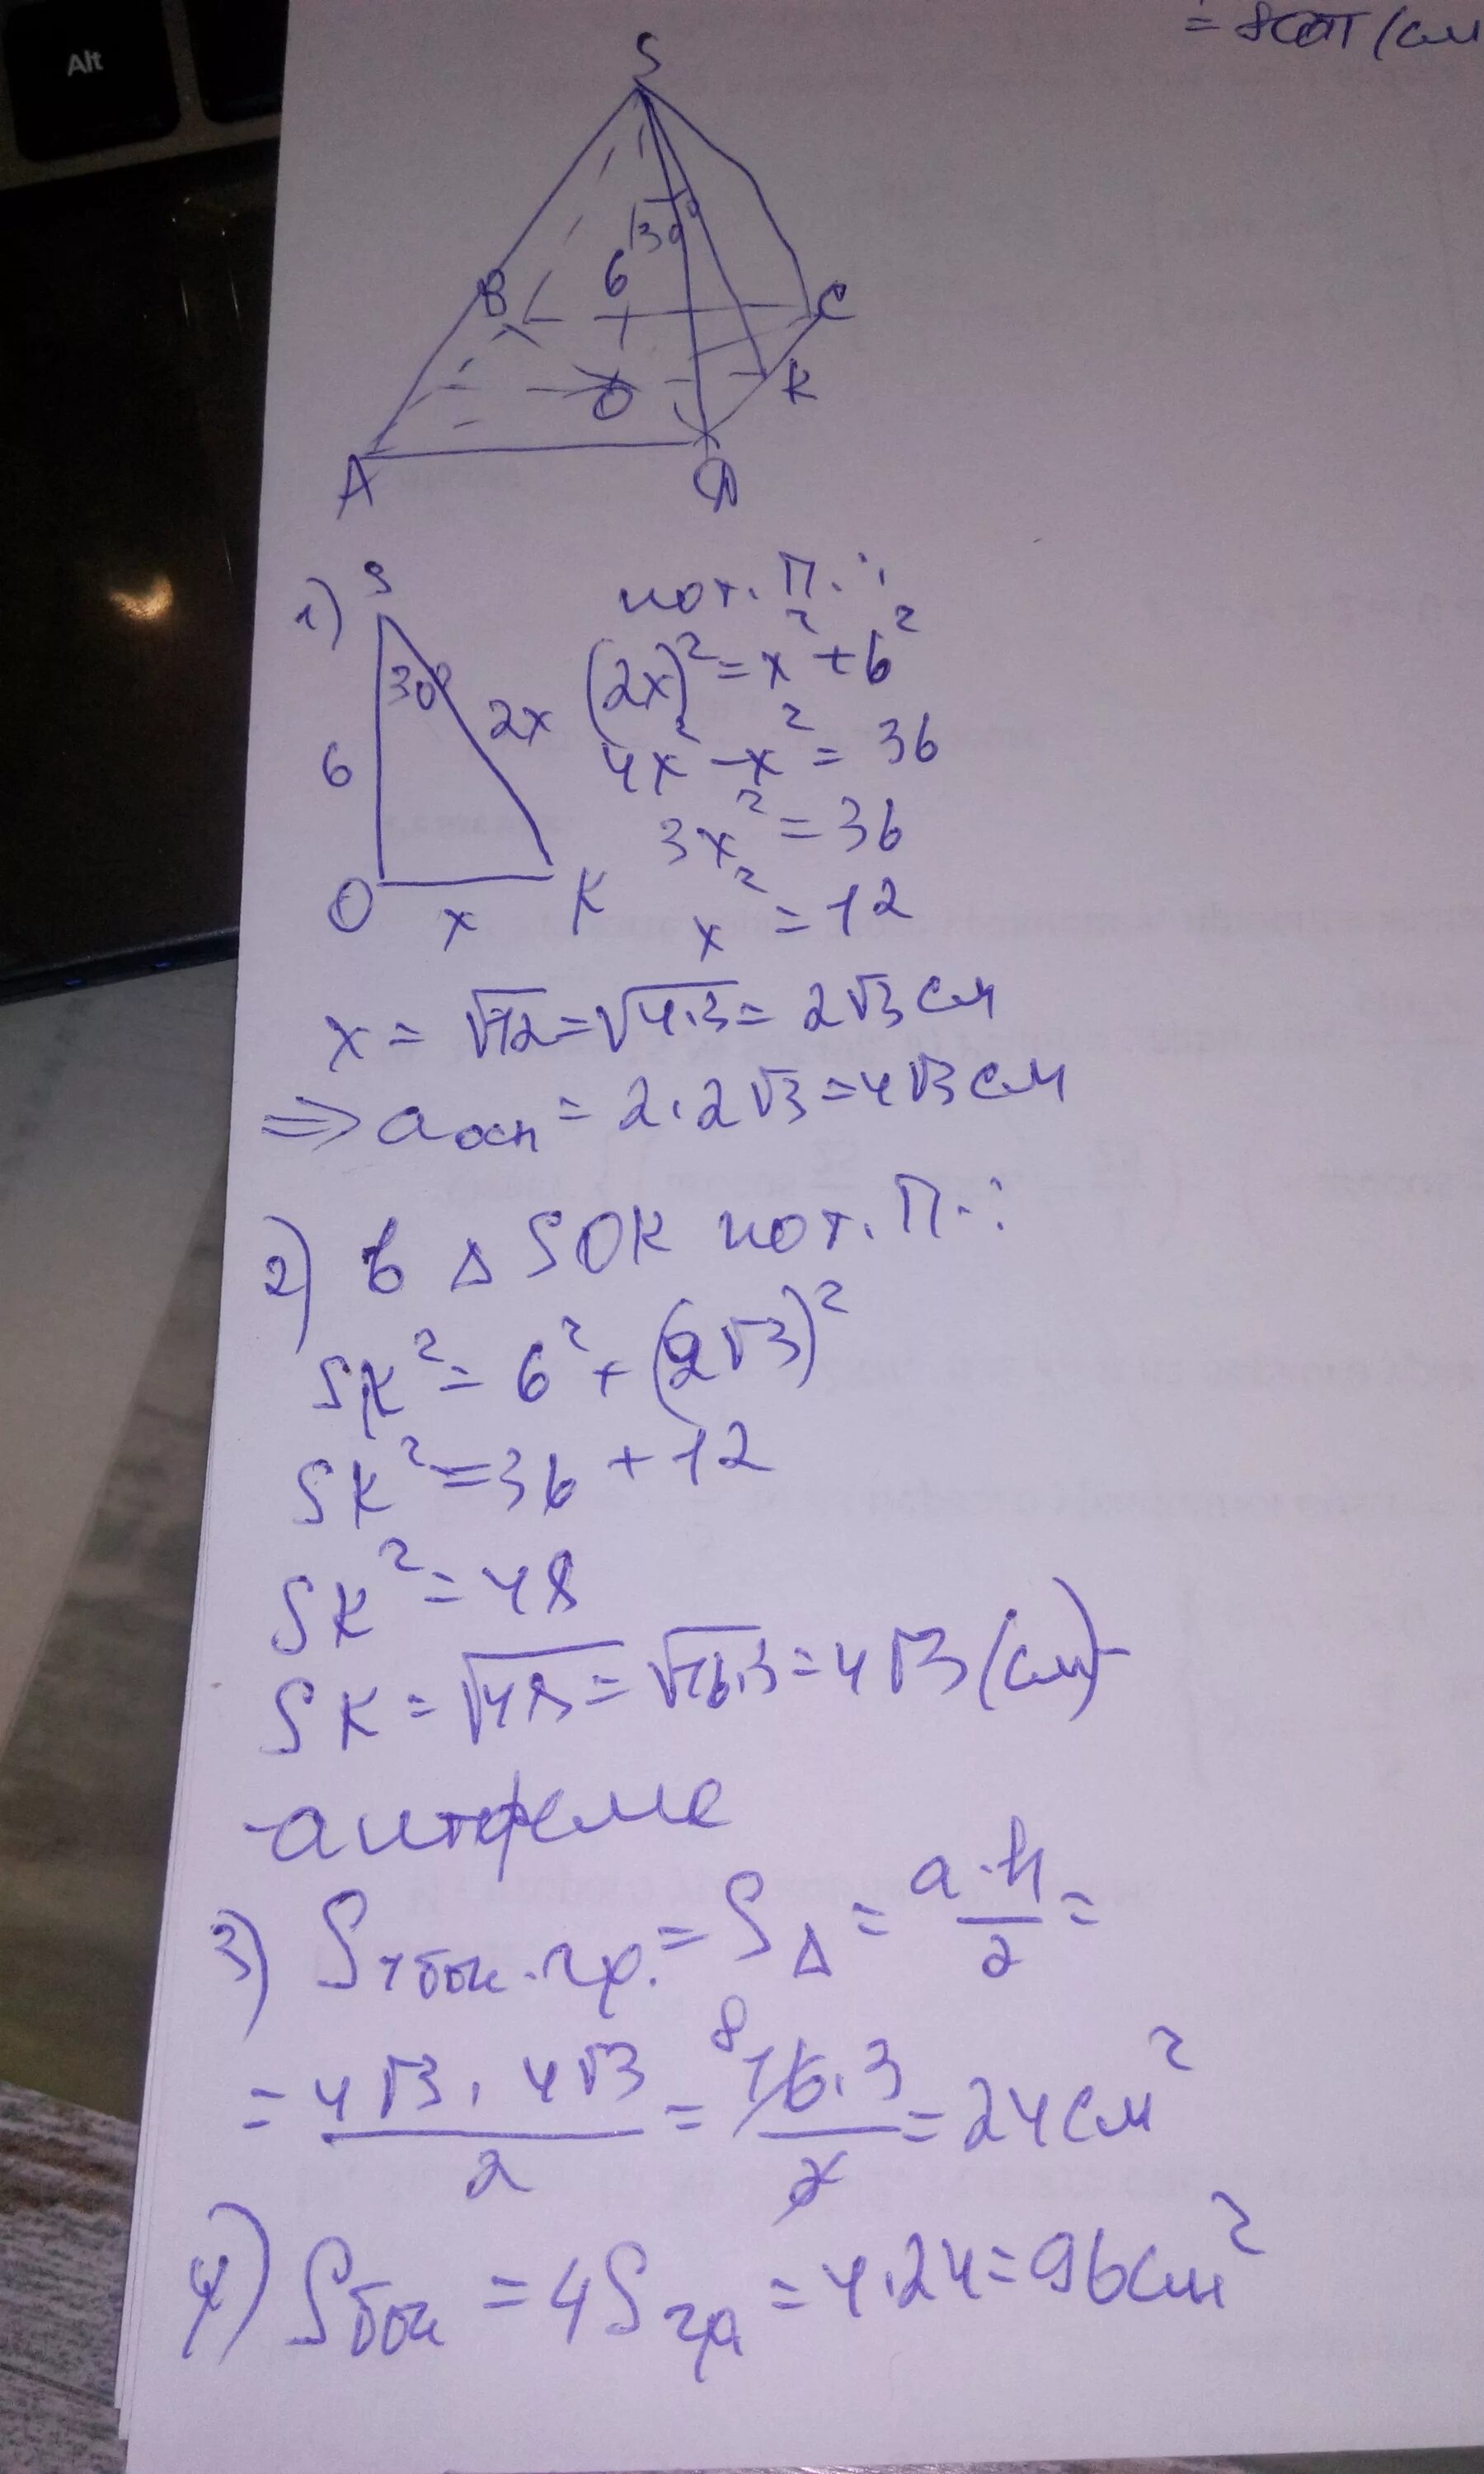 Alt
S
30°
6
B
C
O
K
A
D
1) S
30°
6
2x
O
x
K
по т. П.:
(2x)² = x² + 6²
4x² - x² = 36
3x² = 36
x² = 12
x = √12 = √4·3 = 2√3 см
⇒ a осн = 2·2√3 = 4√3 см
2) в Δ SOK по т. П.:
SK² = 6² + (2√3)²
SK² = 36 + 12
SK² = 48
SK = √48 = √16·3 = 4√3 (см) -
- апофеме
3) S 1 бок. гр. = S Δ = a·h/2 =
= 4√3 · 4√3/2 = 8 16·3/2 = 24 см²
4) S бок = 4S гр = 4·24 = 96 см²